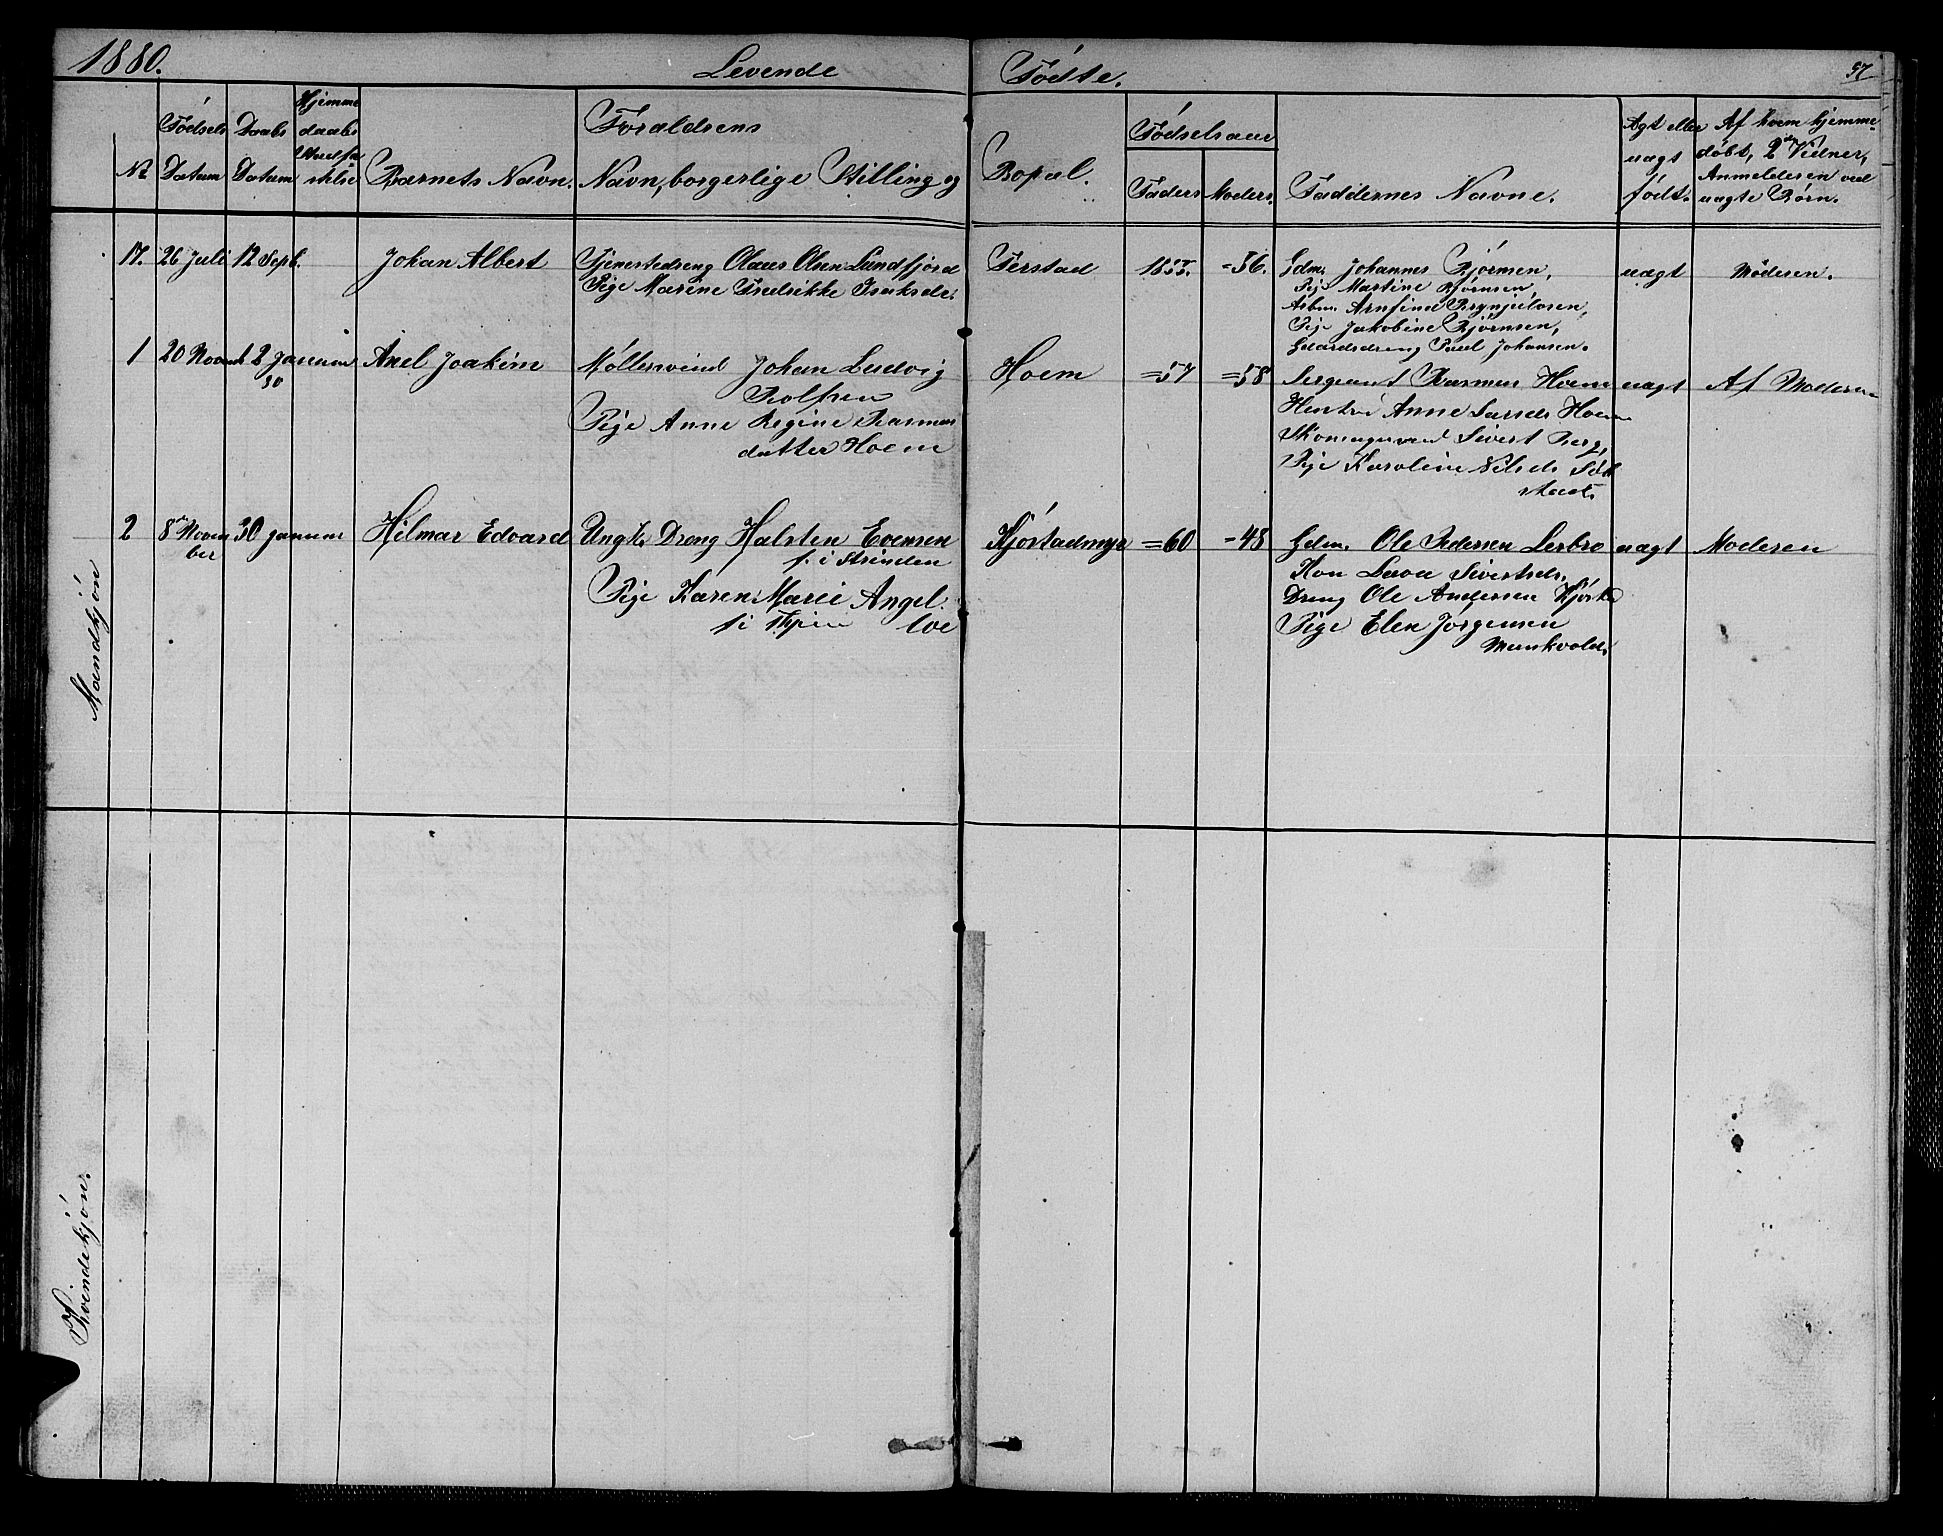 1880. Levende Fødte. 57
Nº Fødsels Datum Daabs Datum Hjemme daabs Barnets Navn. Forældrens Navn, borgerlige Stilling og Bopæl. Fødselsaar Faders Moders. Faddernes Navne. Ægt eller uægt født. Af hvem hjemme- døbt, 2de Vidner, Anmelderen ved uægte Børn.
Mandkjøn
17. 26 Juli 12 Septb. Johan Albert
Tjenestedreng Olaus Olsen Landfjord
Pige Marine Fredrikke Isaksdr.
Ferstad 1855. =56.
Gdm. Johannes Bjørnsen,
Pige Martine Bjørnsen,
Arbm. Arnfind Brynjulvsen,
Pige Jakobine Bjørnsen,
Gaardsdreng Paul Johansen.
uægt Moderen.
1 20 Novemb 2 Januar Axel Joakim
80
Møllersvend Johan Ludvig
Rolfsen
Pige Anne Regine Rasmus
datter Hoem
Hoem =57 =58
Sergeant Rasmus Hoem
Anne Larsdr Hoem
Sivert Berg,
Pige Karoline Nilsdr
uægt Af Moderen
2 8de Novem 30 Januar Hilmar Edvard
ber
Ungk. Dreng Halsten Evensen
f. i Strinden
Pige Karen Marie Angel
f. i
Kjøstadmyr =60 -48
Gdm. Ole Pedersen Lerbro
Kon Sivertsdr.
Dreng Ole Andersen
Pige Elen Jørgensen
Munkvold.
uægt Moderen
Kvindekjøn.